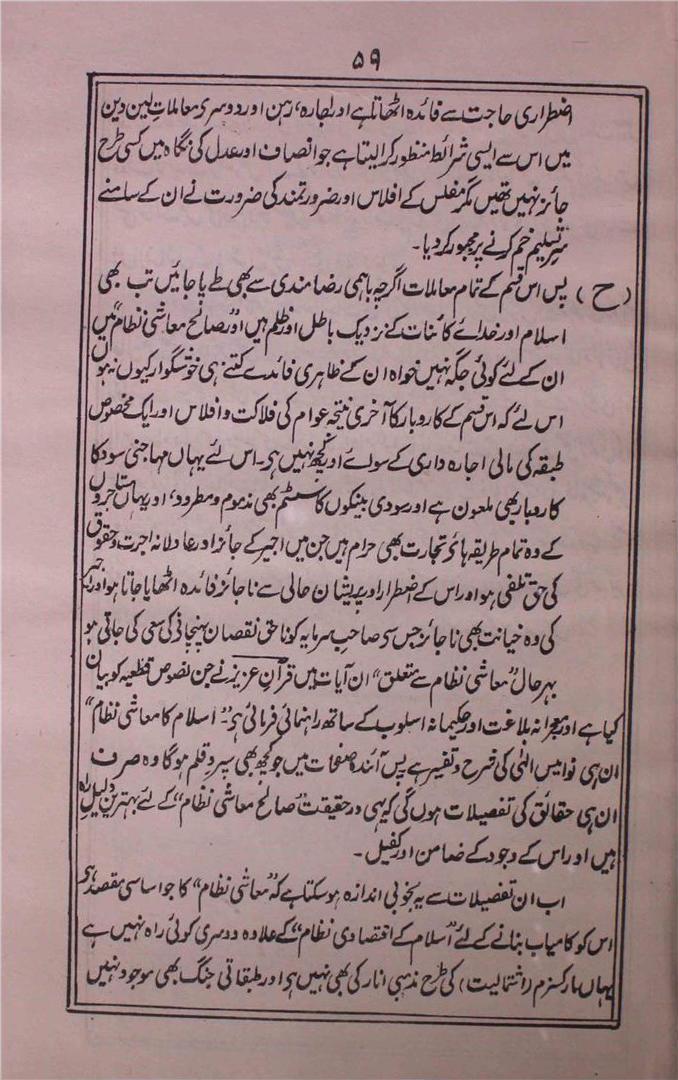 ۵۹
اضطراری حاجت سے فائدہ اٹھاتا ہے اور اجارہ، رہن اور دوسری معاملات لین دین
میں اس سے ایسی شرائط منظور کرالیتا ہے جو انصاف اور عدل کی نگاہ میں کسی طرح
جائز نہیں تھیں مگر مفلس کے افلاس اور ضرورتمند کی ضرورت نے ان کے سامنے
سرِ تسلیم خم کرنے پر مجبور کردیا۔
(ح) پس اس قسم کے تمام معاملات اگرچہ باہمی رضامندی سے بھی طے پا جائیں تب بھی
اسلام اور خدائے کائنات کے نزدیک باطل اور ظلم ہیں اور "صالح معاشی نظام" میں
ان کے لئے کوئی جگہ نہیں خواہ ان کے ظاہری فائدے کتنے ہی خوشگوار کیوں نہ ہوں
اس لئے کہ اس قسم کے کاروبار کا آخری نتیجہ عوام کی فلاکت و افلاس اور ایک مخصوص
طبقہ کی مالی اجارہ داری کے سوائے اور کچھ نہیں ہی۔ اس لئے یہاں مہاجنی سود کا
کاروبار بھی ملعون ہے اور سودی بینکوں کا سسٹم بھی مذموم و مطرود، اور یہاں تاجروں
کے وہ تمام طریقہ ہائے تجارت بھی حرام ہیں جن میں اجیر کے جائز اور عادلانہ اجرت و حقوق
کی حق تلفی ہو اور اس کے اضطرار اور پریشان حالی سے ناجائز فائدہ اٹھایا جاتا ہو اور اجیر
کی وہ خیانت بھی ناجائز جس سی صاحبِ سرمایہ کو ناحق نقصان پہنچانے کی سعی کی جاتی ہو
بہرحال "معاشی نظام سے متعلق" ان آیات میں قرآنِ عزیز نے جن نصوص قطعیہ کو بیان
کیا ہے اور معجزانہ بلاغت اور حکیمانہ اسلوب کے ساتھ راہنمائی فرمائی ہی۔ "اسلام کا معاشی نظام"
ان ہی نوامیس الٰہی کی شرح و تفسیر ہے پس آئندہ صفحات میں جو کچھ بھی سپردِ قلم ہوگا وہ صرف
ان ہی حقائق کی تفصیلات ہوں گی کہ یہی درحقیقت "صالح معاشی نظام" کے لئے بہترین دلیلِ راہ
ہیں اور اس کے وجود کے ضامن اور کفیل۔
اب ان تفصیلات سے یہ بخوبی اندازہ ہو سکتا ہے کہ "معاشی نظام" کا جو اساسی مقصد ہی
اس کو کامیاب بنانے کے لئے "اسلام کے اقتصادی نظام" کے علاوہ دوسری کوئی راہ نہیں ہے
یہاں مارکسزم (اشتمالیت) کی طرح مذہبی انارکی بھی نہیں ہی اور طبقاتی جنگ بھی موجود نہیں